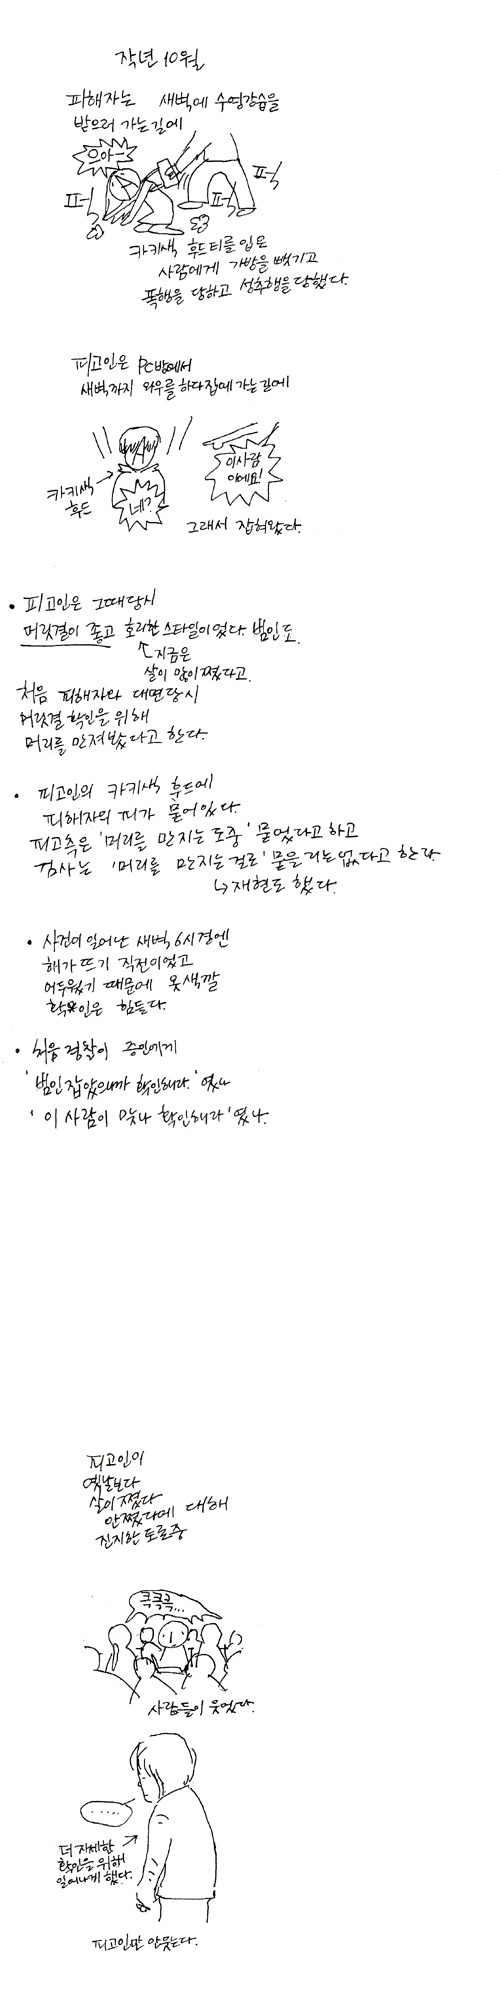 작년 10월
피해자는 새벽에 수영강습을
받으러 가는길에
으아-
퍼
퍽
퍽
카키색 후드티를 입은
사람에게 가방을 뺏기고
폭행을 당하고 성추행을 당했다.
피고인은 PC방에서
새벽까지 와우를 하다집에 가는길에
이사람
이에요!
카키색
후드
네?
그래서 잡혀왔다.
• 피고인은 그때당시
머릿결이 좋고 호리한 스타일이었다. 범인도.
지금은
살이 많이 쪘다고.
처음 피해자와 대면당시
머릿결 확인을 위해
머리를 만져봤다고 한다.
• 피고인의 카키색 후드에
피해자의 피가 묻어있다.
피고측은 '머리를 만지는 도중' 묻었다고 하고
검사는 '머리를 만지는 걸로' 묻을리는 없다고 한다
↳ 재현도 했다.
• 사건이 일어난 새벽 6시경엔
해가 뜨기 직전이었고
어두웠기 때문에 옷색깔
확인은 힘들다.
• 처음 경찰이 증인에게
'범인 잡았으니까 확인해라.' 였나
'이 사람이 맞나 확인해라' 였나.
피고인이
옛날보다
살이 쪘다
안쪘다에 대해
진지한 토론중
큭큭큭...
사람들이 웃었다.
.....
더 자세한
확인을 위해
일어나게 했다.
피고인만 안웃는다.